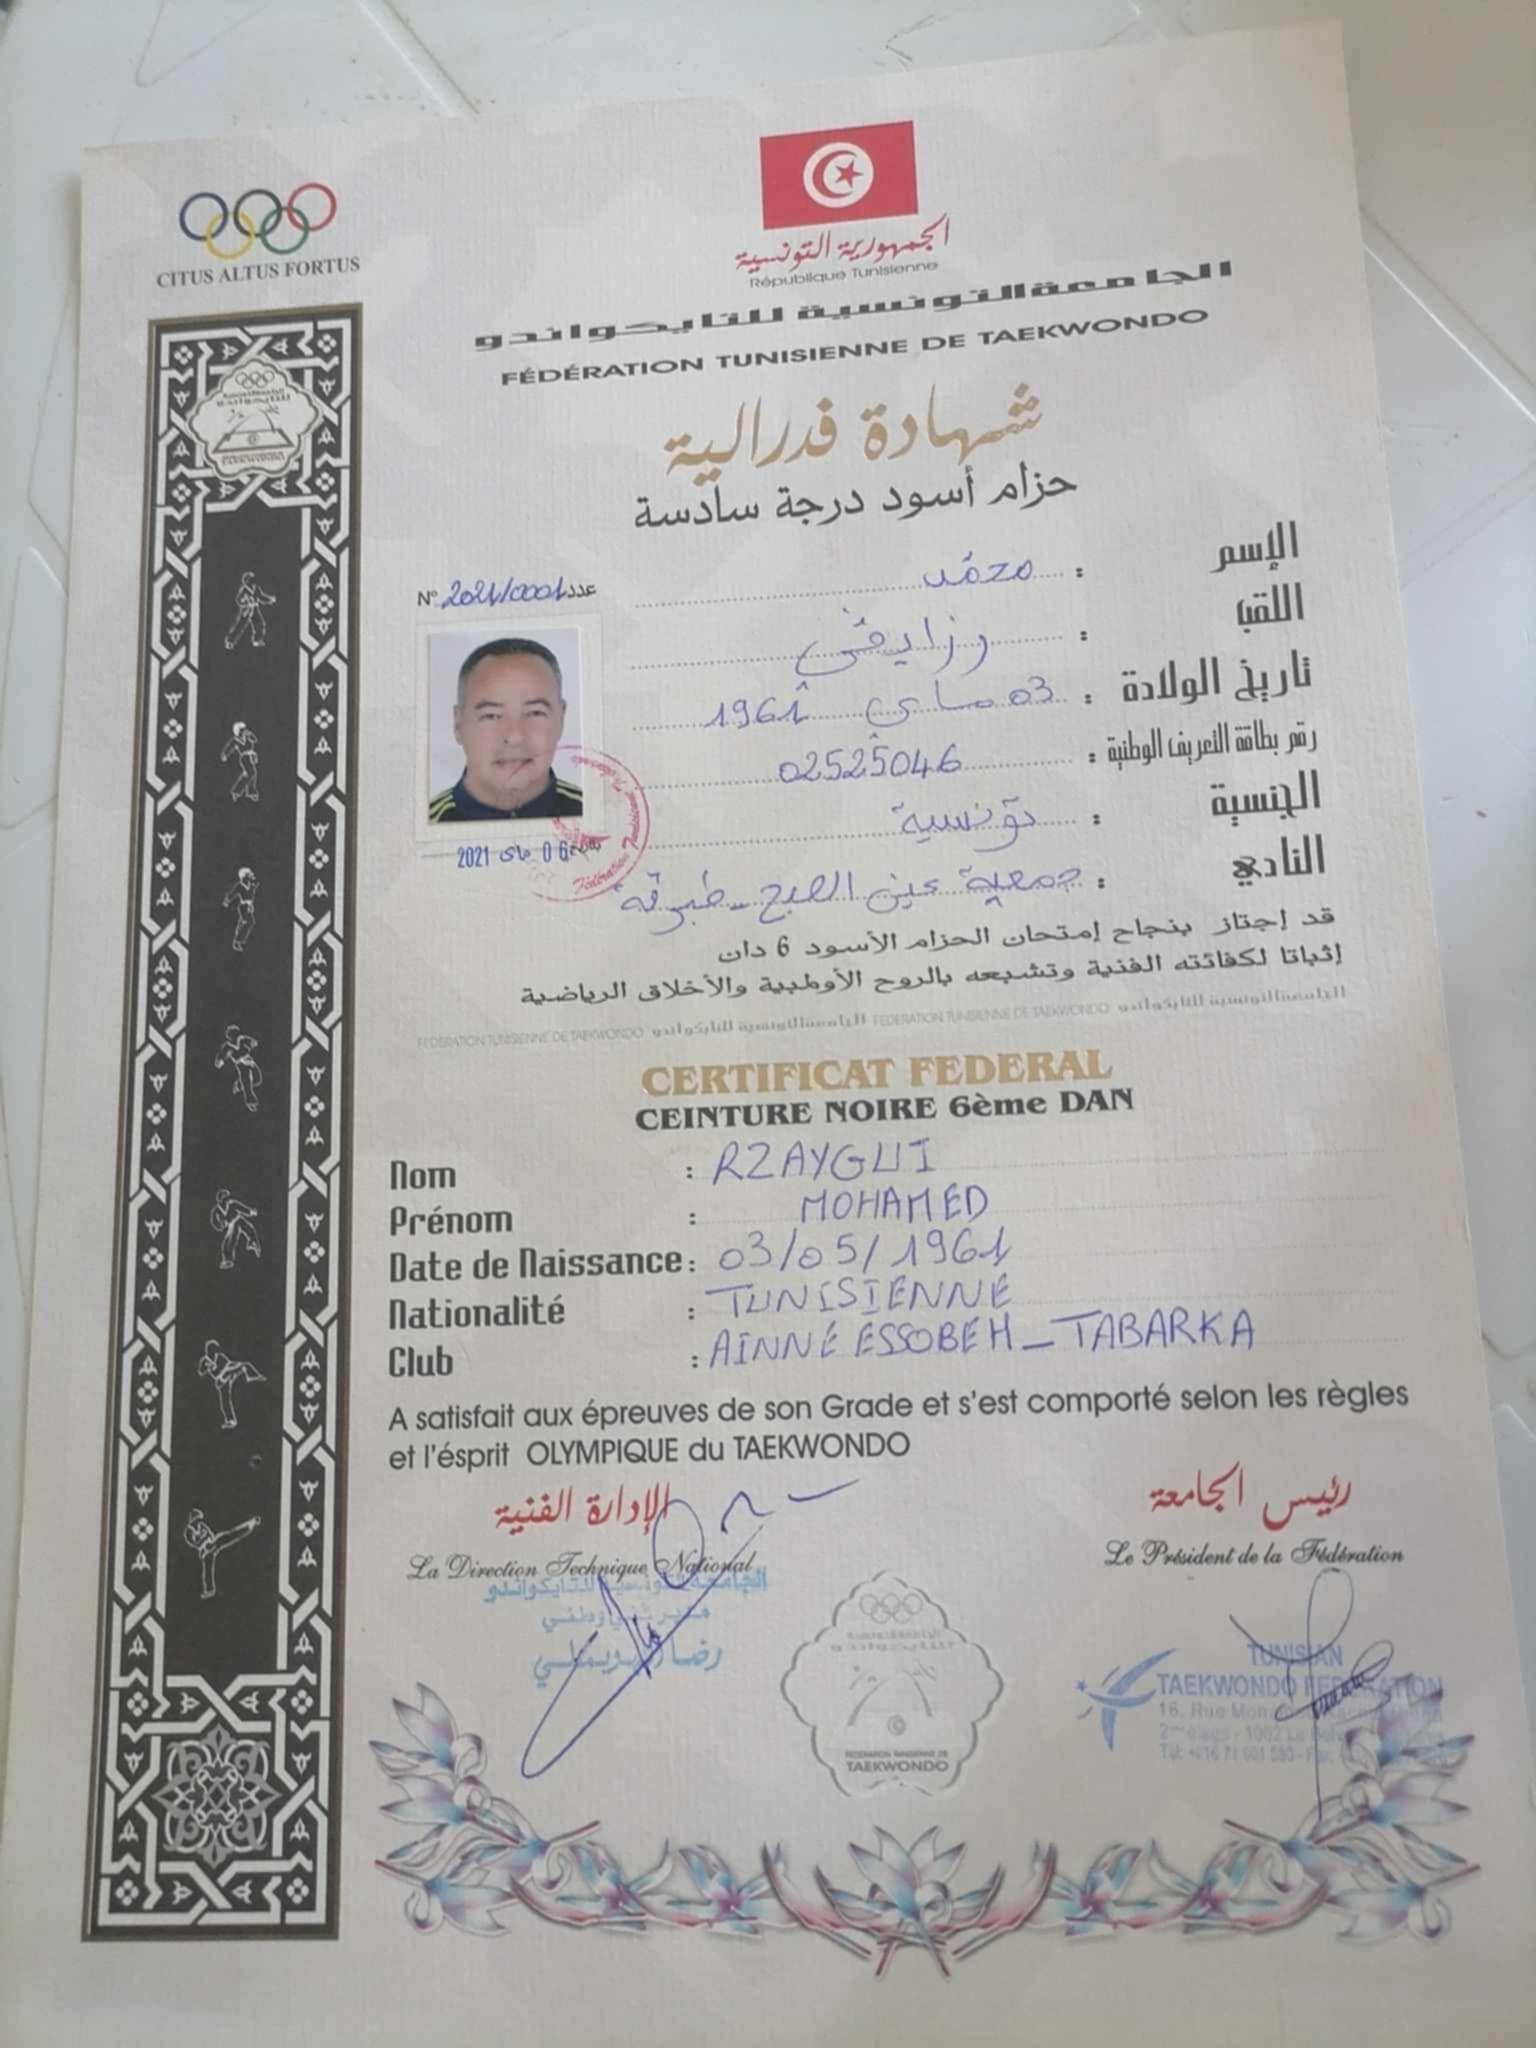 CITUS ALTUS FORTUS
الجمهورية التونسية
République Tunisienne
الجامعة التونسية للتايكواندو
FÉDÉRATION TUNISIENNE DE TAEKWONDO
شهادة فدرالية
حزام أسود درجة سادسة
N° 2021/0001 عدد
الإسم : محمد
اللقب : رزايقي
تاريخ الولادة : 03 ماي 1961
رقم بطاقة التعريف الوطنية : 02525046
الجنسية : تونسية
النادي : جمعية عين الصبح - طبرقة
06 ماي 2021
قد إجتاز بنجاح إمتحان الحزام الأسود 6 دان
إثباتا لكفائته الفنية وتشبعه بالروح الأولمبية والأخلاق الرياضية
FEDERATION TUNISIENNE DE TAEKWONDO الجامعة التونسية للتايكواندو FEDERATION TUNISIENNE DE TAEKWONDO الجامعة التونسية للتايكواندو
CERTIFICAT FEDERAL
CEINTURE NOIRE 6ème DAN
Nom : RZAYGUI
Prénom : MOHAMED
Date de Naissance : 03/05/1961
Nationalité : TUNISIENNE
Club : AINNE ESSOBEH - TABARKA
A satisfait aux épreuves de son Grade et s'est comporté selon les règles
et l'ésprit OLYMPIQUE du TAEKWONDO
رئيس الجامعة
Le Président de la Fédération
الإدارة الفنية
La Direction Technique National
الجامعة التونسية للتايكواندو
مدير فني وطني
رضا
TUNISIAN
TAEKWONDO FEDERATION
16, Rue
TAEKWONDO